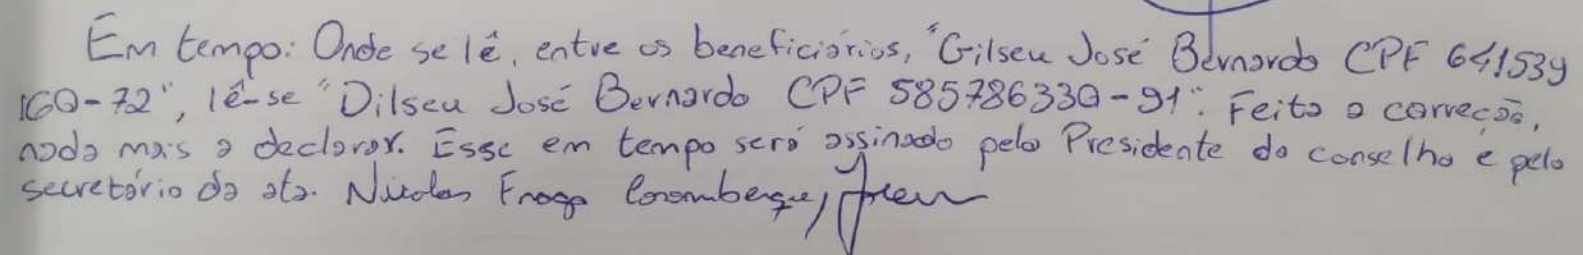 Em tempo: Onde se lê, entre os beneficiários, "Gilseu José Bernardo CPF 641539
160-72", lê-se "Dilseu José Bernardo CPF 585786330-91". Feita a correção,
nada mais a declarar. Esse em tempo será assinado pelo Presidente do conselho e pelo
secretário da ata. Nicolas Fraga